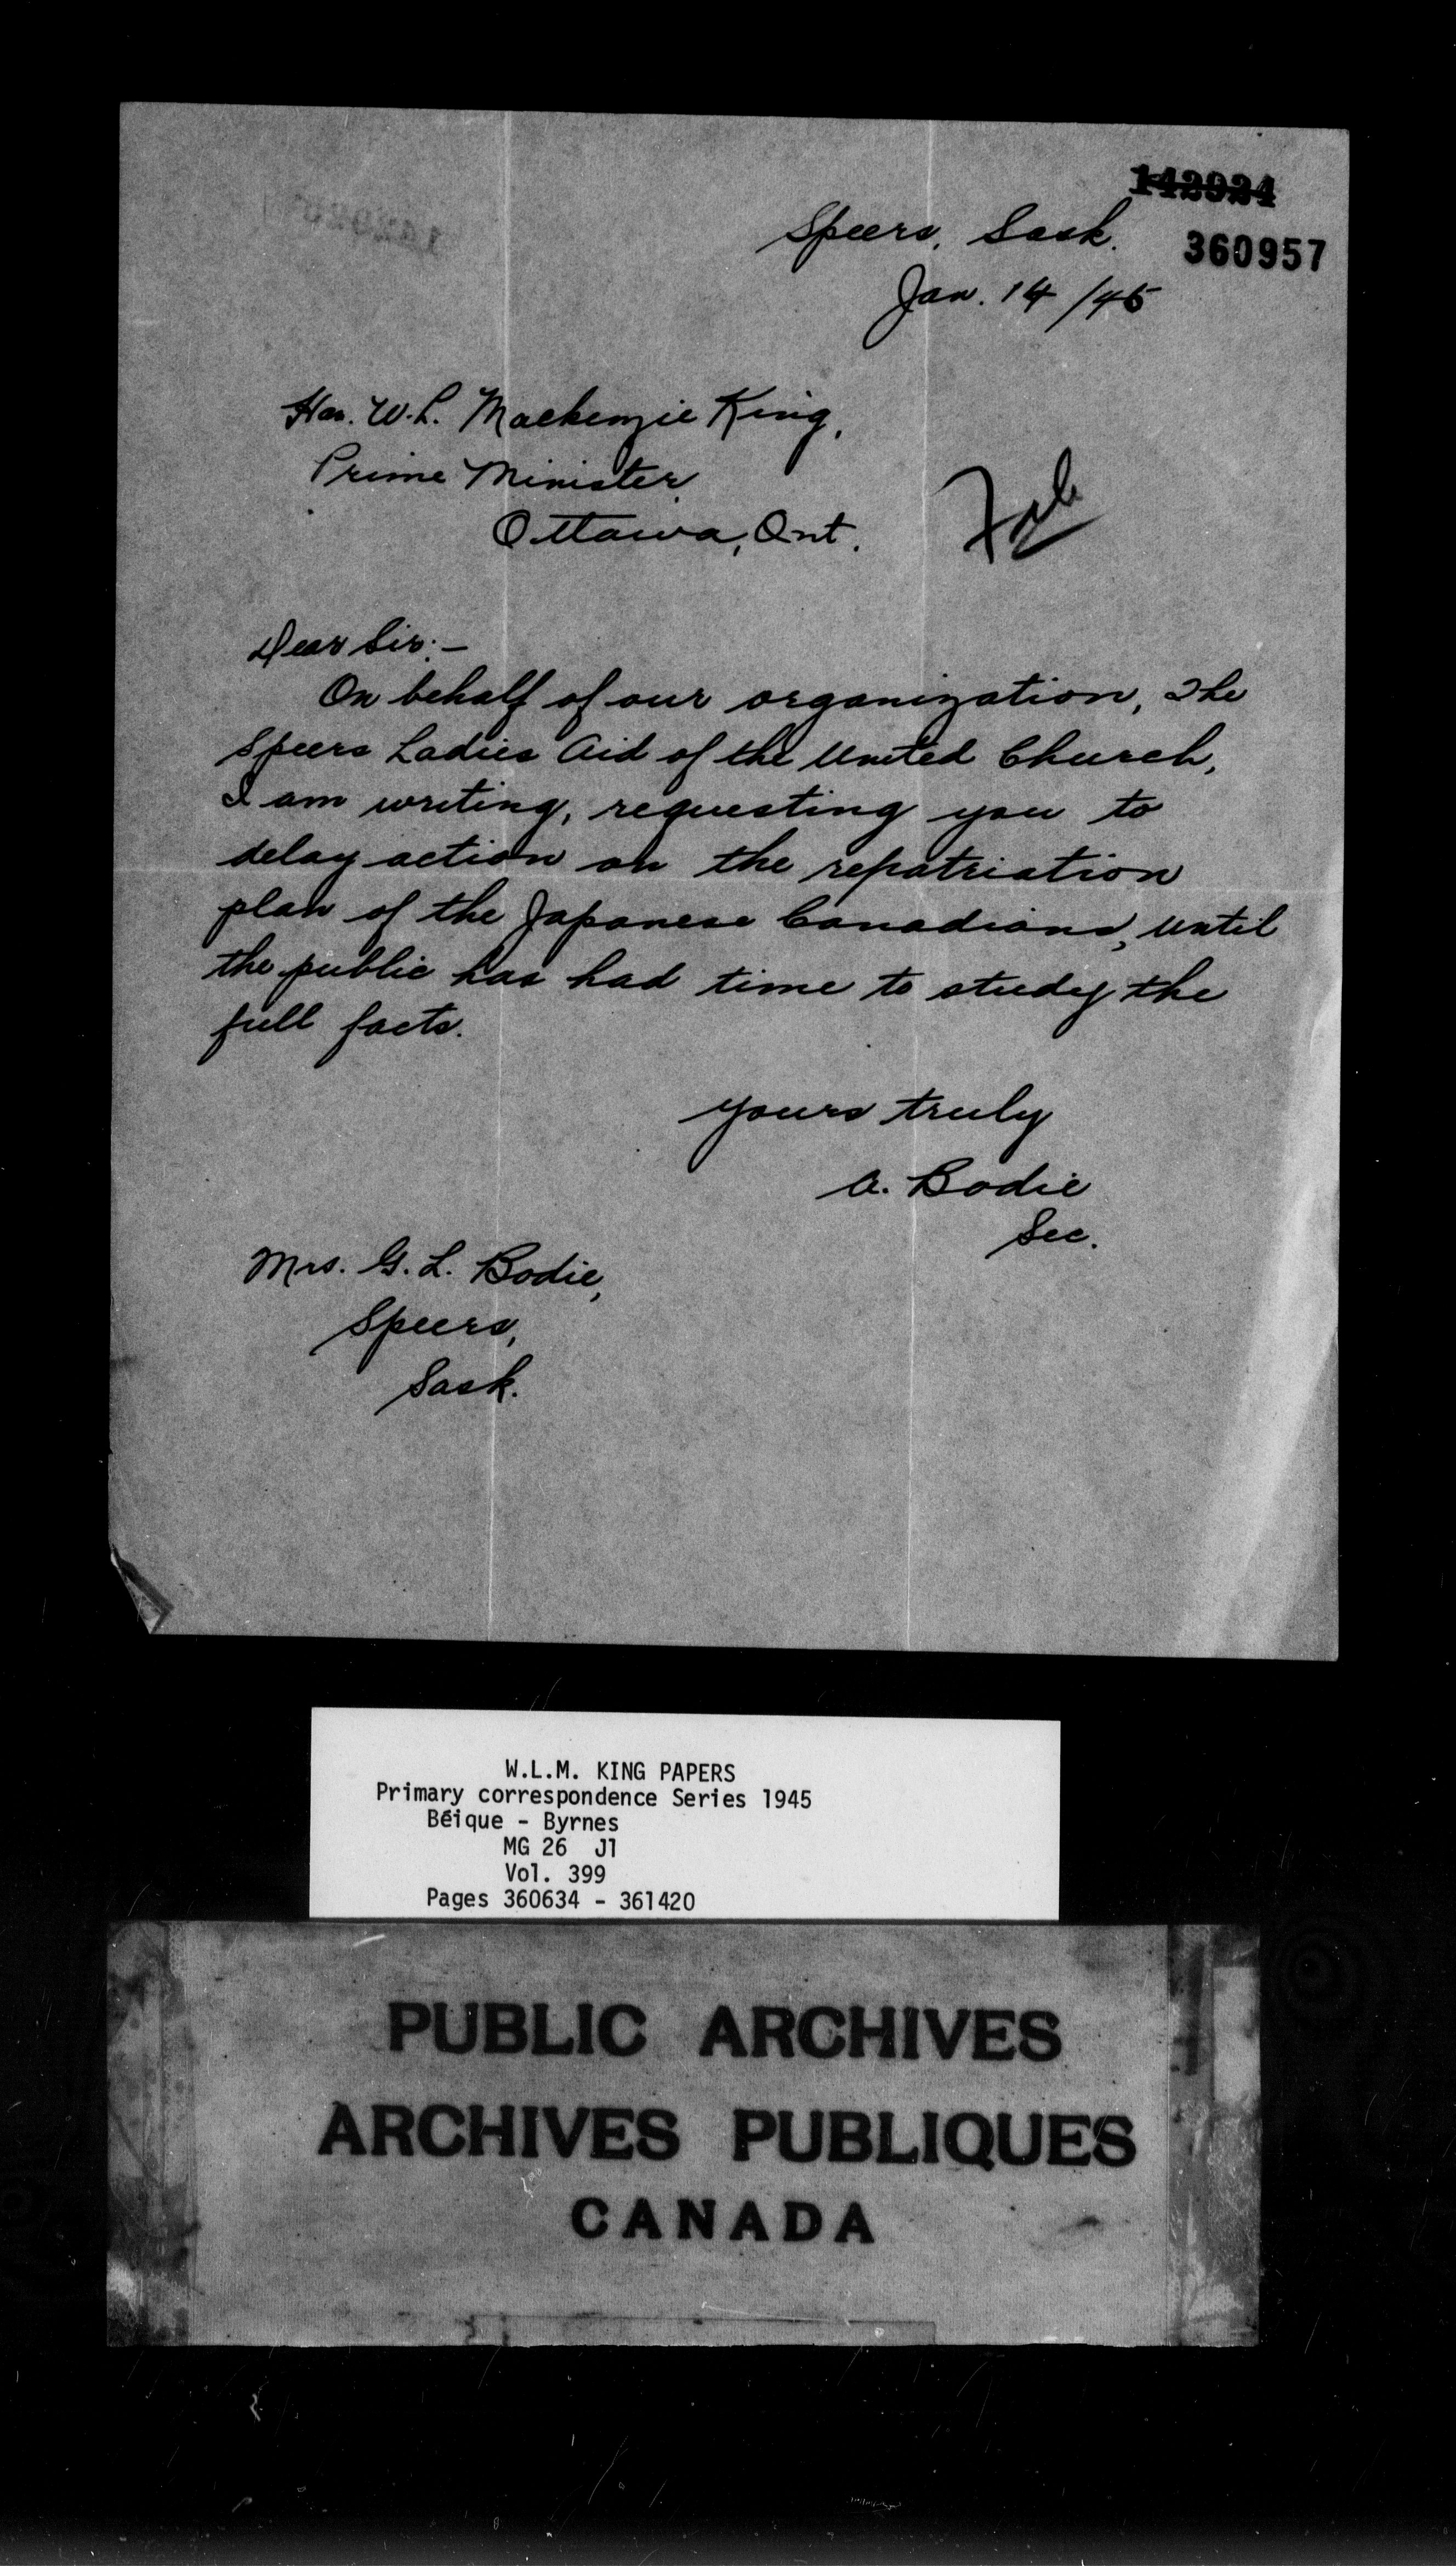 142924
Speers, Sask.
360957
Jan. 14 /45
Hon. W.L. Mackenzie King,
Prime Minister
Ottawa, Ont.
File
Dear Sir:-
On behalf of our organization, The
Speers Ladies Aid of the United Church,
I am writing, requesting you to
delay action on the repatriation
plan of the Japanese Canadians, until
the public has had time to study the
full facts.
Yours truly
A. Bodie
Sec.
Mrs. G. L. Bodie,
Speers,
Sask.
W.L.M. KING PAPERS
Primary correspondence Series 1945
Béique - Byrnes
MG 26 J1
Vol. 399
Pages 360634 - 361420
PUBLIC ARCHIVES
ARCHIVES PUBLIQUES
CANADA